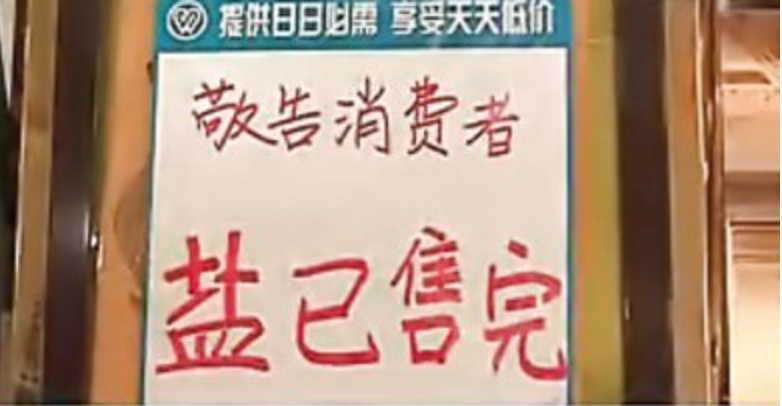 提供日日必需 享受天天低价
敬告消费者
盐已售完